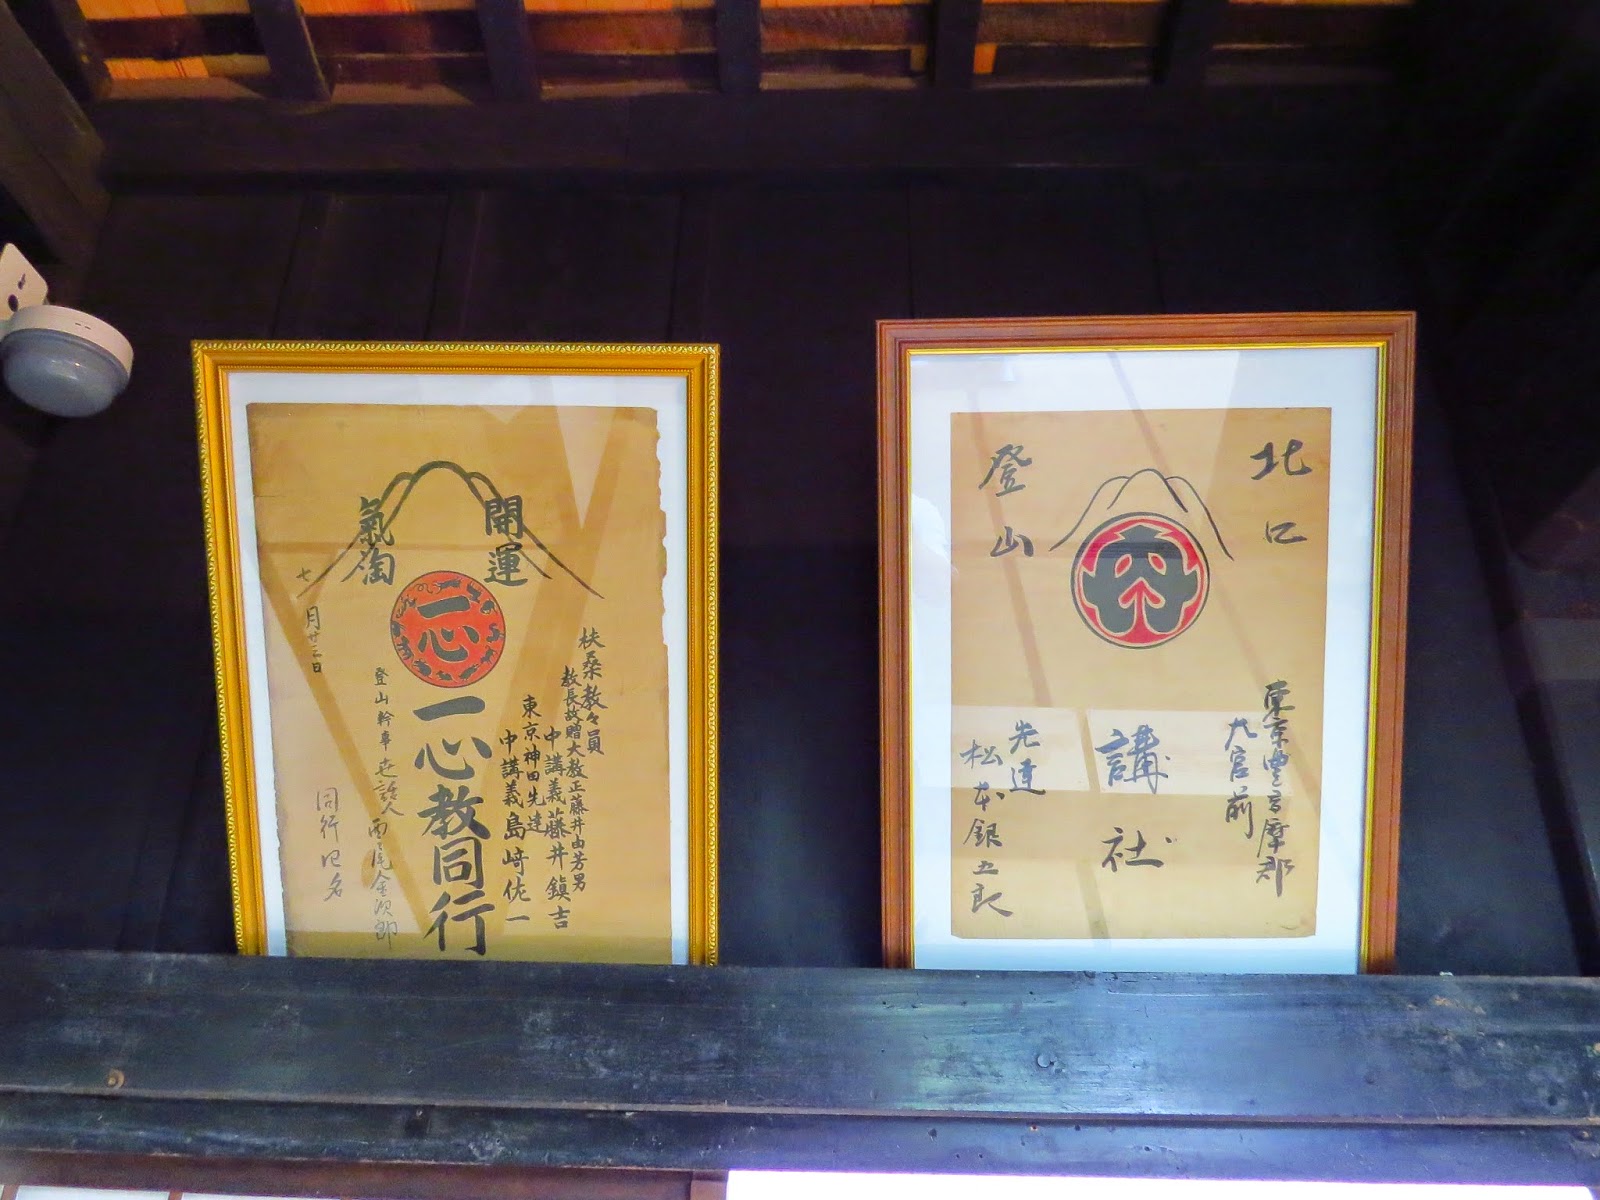 開運
氣淘
一心
扶桑教々員
教長故贈大教正藤井由芳男
中講義藤井鎭吉
東京神田先達
中講義島﨑佐一
一心教同行
登山幹事世話人西尾金次郎
同行四名
七月廿三日
北口
登山
東京豐多摩郡
大宮前
講社
先達
松本銀五郎